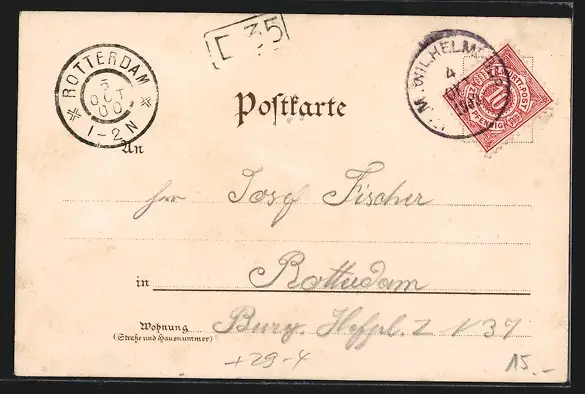 ROTTERDAM
5
OCT
00
1-2N
35
WILHELM
4
10
PFENNIG
Postkarte
An
Herr Josef Fischer
in Rotterdam
Wohnung
(Straße und Hausnummer)
Burg. 2 N 37
+29-4
15.-